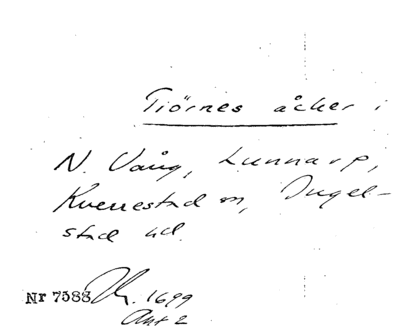 Tiörnes åcker i
N. Vång, Lunnarp,
Kverrestad sn, Ingel-
stad hd.
Nr 7588 . 1699
Akt 2